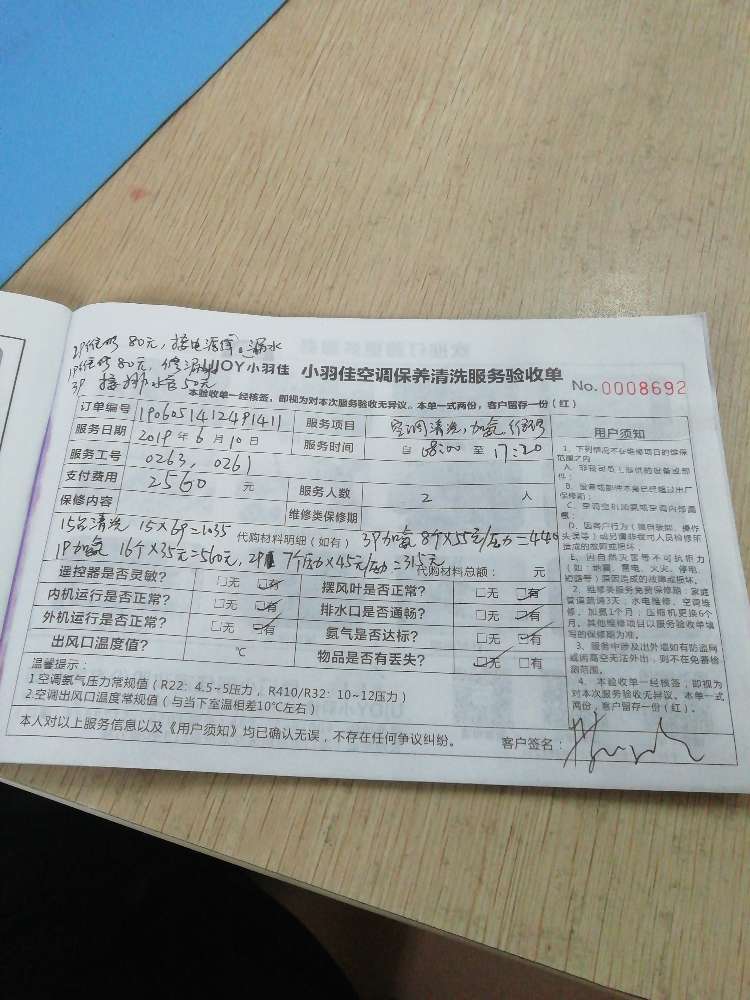 2P维修 80元, 接电源线。漏水
1P维修 80元, 修漏水
3P 接排水管 50元
UJOY小羽佳 小羽佳空调保养清洗服务验收单 No.0008692
本验收单一经核签，即视为对本次服务验收无异议。本单一式两份，客户留存一份（红）
订单编号 1906051412491411 服务项目 空调清洗,加氨,维修
服务日期 2019年6月10日 服务时间 自 08:00 至 17:20
服务工号 0263, 0261
支付费用 2560 元 服务人数 2 人
保修内容 维修类保修期
15台清洗 15×69=1035 代购材料明细（如有） 3P加氨 8个×55元/压力=440
1P加氨 16个×35元=560元, 2P 7个压力×45元/压力=315元
代购材料总额： 元
遥控器是否灵敏? 无 有 摆风叶是否正常? 无 有
内机运行是否正常? 无 有 排水口是否通畅? 无 有
外机运行是否正常? 无 有 氨气是否达标? 无 有
出风口温度值? ℃ 物品是否有丢失? 无 有
温馨提示：
1.空调氨气压力常规值（R22：4.5~5压力，R410/R32：10~12压力）
2.空调出风口温度常规值（与当下室温相差10℃左右）
本人对以上服务信息以及《用户须知》均已确认无误，不存在任何争议纠纷。 客户签名：
用户须知
1、下列情况不在维修项目的维保
范围之内
A、非我司员工提供的设备或部
件；
保修期；
D、因客户行为（擅自装卸、操作
失误等）或另请非我司人员检修所
造成的故障或损坏。
E、因自然灾害等不可抗拒力
（如：地震、雷电、火灾、停电、
短路等）原因造成的故障或损坏。
2、维修类服务免费保修期：家庭
管道疏通3天，水电维修、空调维
修、加氨1个月；压缩机更换6个
月。其他维修项目以服务验收单填
写的保修期为准。
3、服务中涉及出外墙如有防盗网
或闭高空无法外出，则不在免费检
测范围。
4、本验收单一经核签，即视为
对本次服务验收无异议。本单一式
两份，客户留存一份（红）。